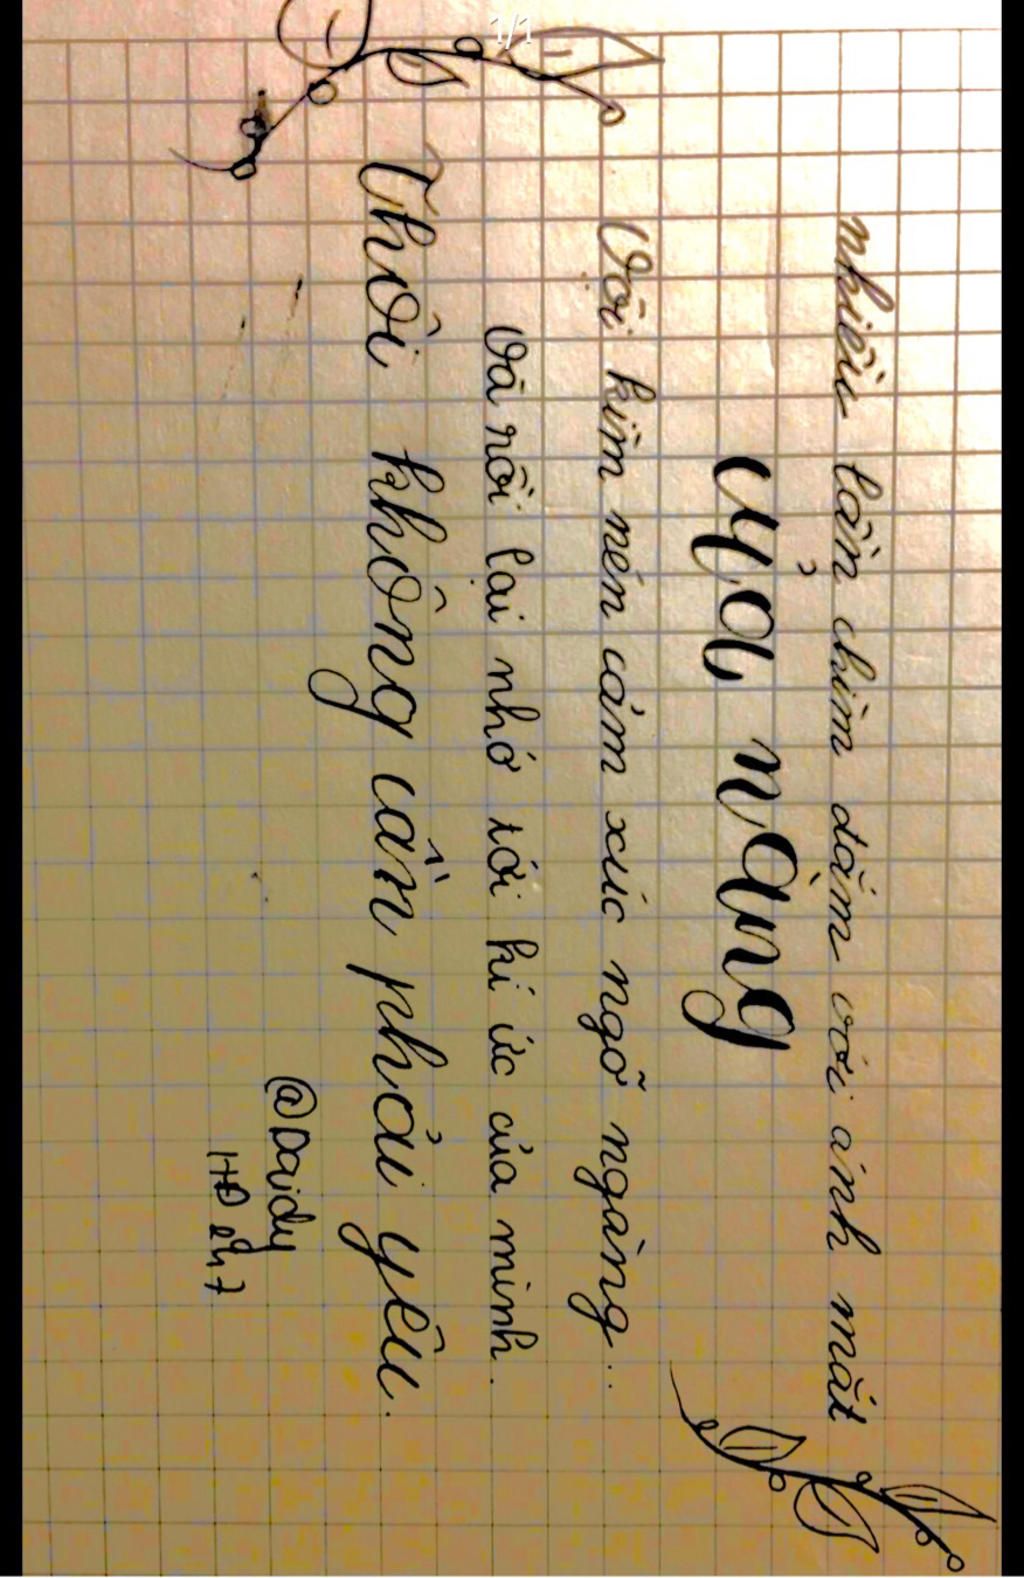 nhiều lần chìm đắm với ánh mắt
của nàng
Vội kìm nén cảm xúc ngỡ ngàng...
Và rồi lại nhớ tới kí ức của mình.
Thôi không cần phải yêu.
@Daidy
1/1